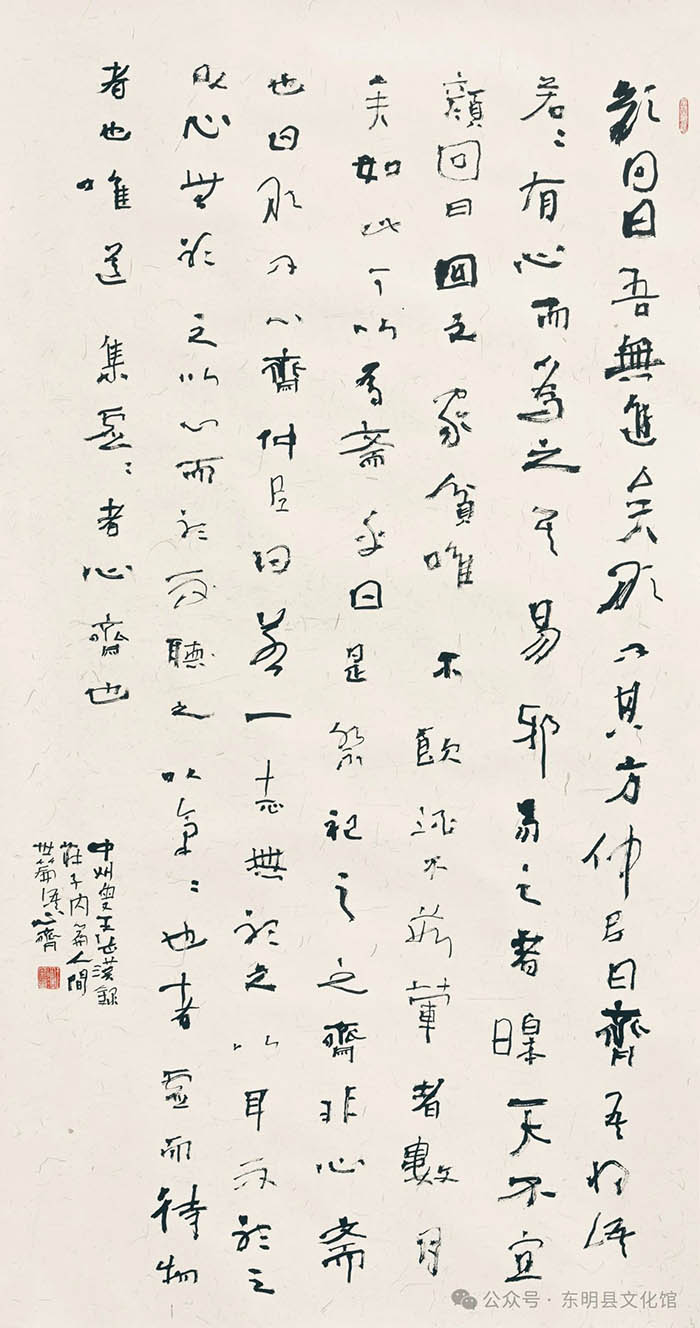 顏回曰吾無進矣敢問其方仲尼曰齋吾將語
若〻有心而為之其易邪易之者暤天不宜
顏回曰回之家貧唯不飲酒不茹葷者數月
矣如此可以為齋乎曰是祭祀之之齋非心齋
也曰敢問心齋仲尼曰若一志無聽之以耳而聽之
以心無聽之以心而聽而聽之以氣〻也者虛而待物
者也唯道集虛〻者心齋也
中州王漢錄
莊子內篇人間
世篇語心齋
公众号·东明县文化馆